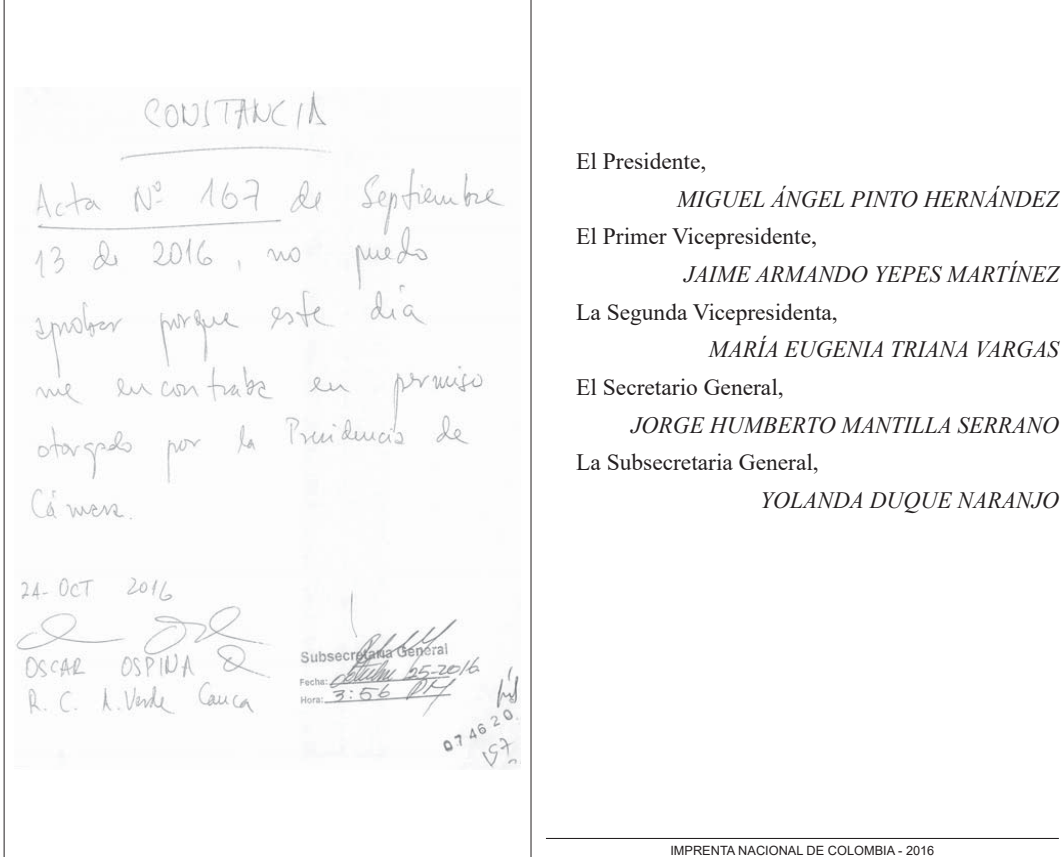 CONSTANCIA
Acta Nº 167 de Septiembre
13 de 2016, no puedo
aprobar porque este día
me encontraba en permiso
otorgado por la Presidencia de
Cámara.
24-OCT 2016
OSCAR OSPINA Q
R. C. A. Verde Cauca
Subsecretaria General
Fecha: octubre 25-2016
Hora: 3:56 PM
074620
El Presidente,
MIGUEL ÁNGEL PINTO HERNÁNDEZ
El Primer Vicepresidente,
JAIME ARMANDO YEPES MARTÍNEZ
La Segunda Vicepresidenta,
MARÍA EUGENIA TRIANA VARGAS
El Secretario General,
JORGE HUMBERTO MANTILLA SERRANO
La Subsecretaria General,
YOLANDA DUQUE NARANJO
IMPRENTA NACIONAL DE COLOMBIA - 2016